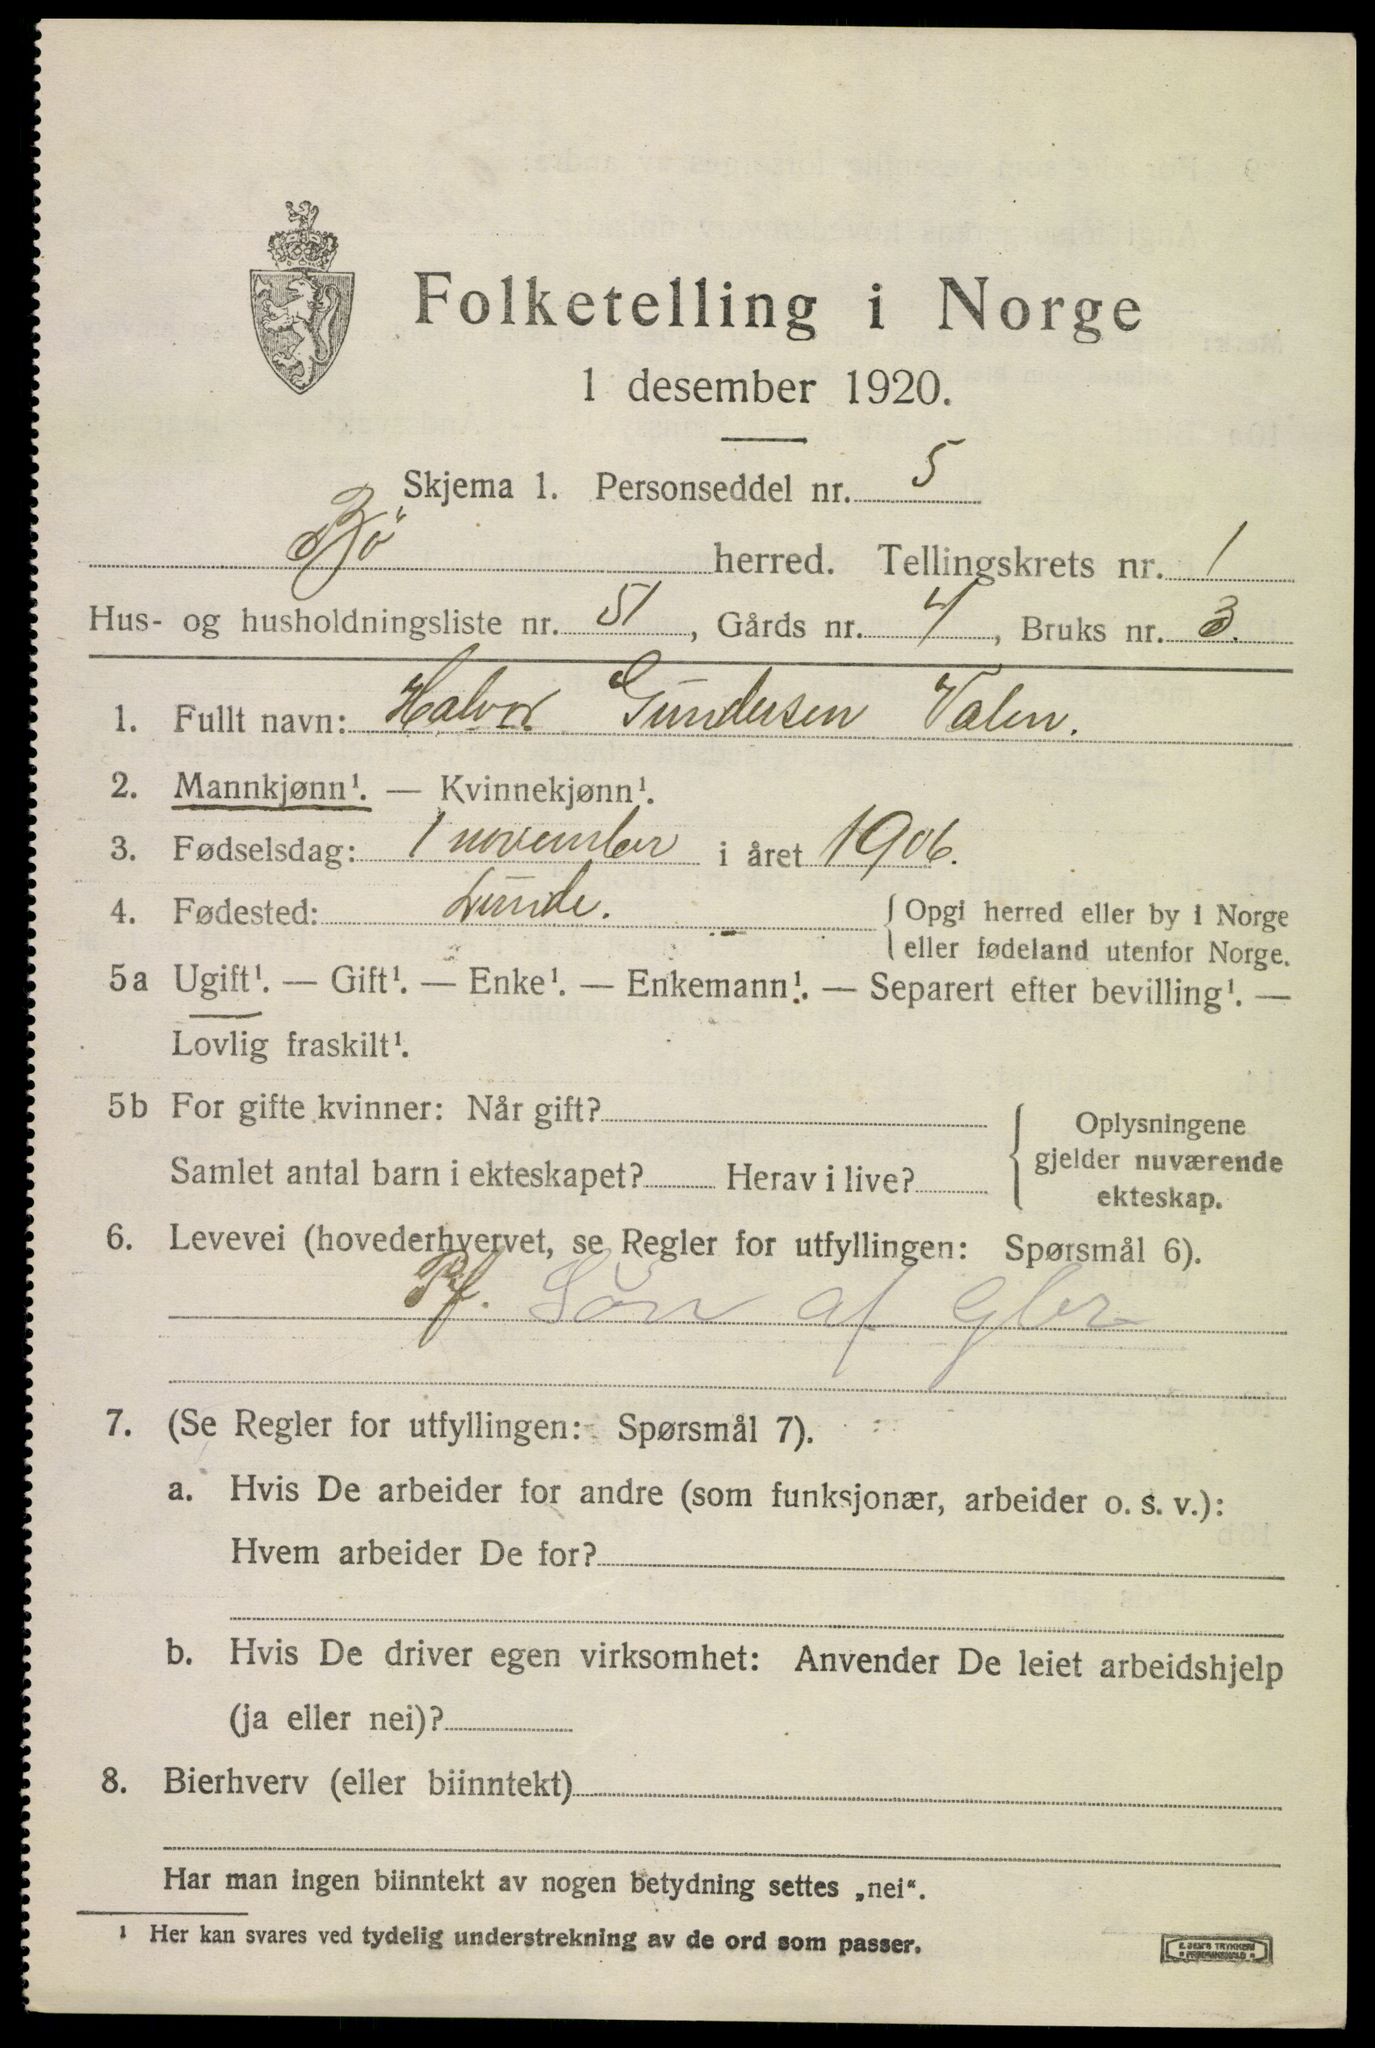 Folketelling i Norge
1 desember 1920.
Skjema 1. Personseddel nr. 5
Bö herred. Tellingskrets nr. 1
Hus- og husholdningsliste nr. 51, Gårds nr. 4, Bruks nr. 3.
1. Fullt navn: Halvor Gundersen Valen.
2. Mannkjønn¹. — Kvinnekjønn¹.
3. Fødselsdag: 1 november i året 1906.
4. Fødested: Lunde. { Opgi herred eller by i Norge
eller fødeland utenfor Norge.
5a Ugift¹. — Gift¹. — Enke¹. — Enkemann¹. — Separert efter bevilling¹. —
Lovlig fraskilt¹.
5b For gifte kvinner: Når gift?
Samlet antal barn i ekteskapet? Herav i live?
Oplysningene
gjelder nuværende
ekteskap.
6. Levevei (hovederhvervet, se Regler for utfyllingen: Spørsmål 6).
Pf. Sön af Gbr
7. (Se Regler for utfyllingen: Spørsmål 7).
a. Hvis De arbeider for andre (som funksjonær, arbeider o. s. v.):
Hvem arbeider De for?
b. Hvis De driver egen virksomhet: Anvender De leiet arbeidshjelp
(ja eller nei)?
8. Bierhverv (eller biinntekt)
Har man ingen biinntekt av nogen betydning settes „nei“.
¹ Her kan svares ved tydelig understrekning av de ord som passer.